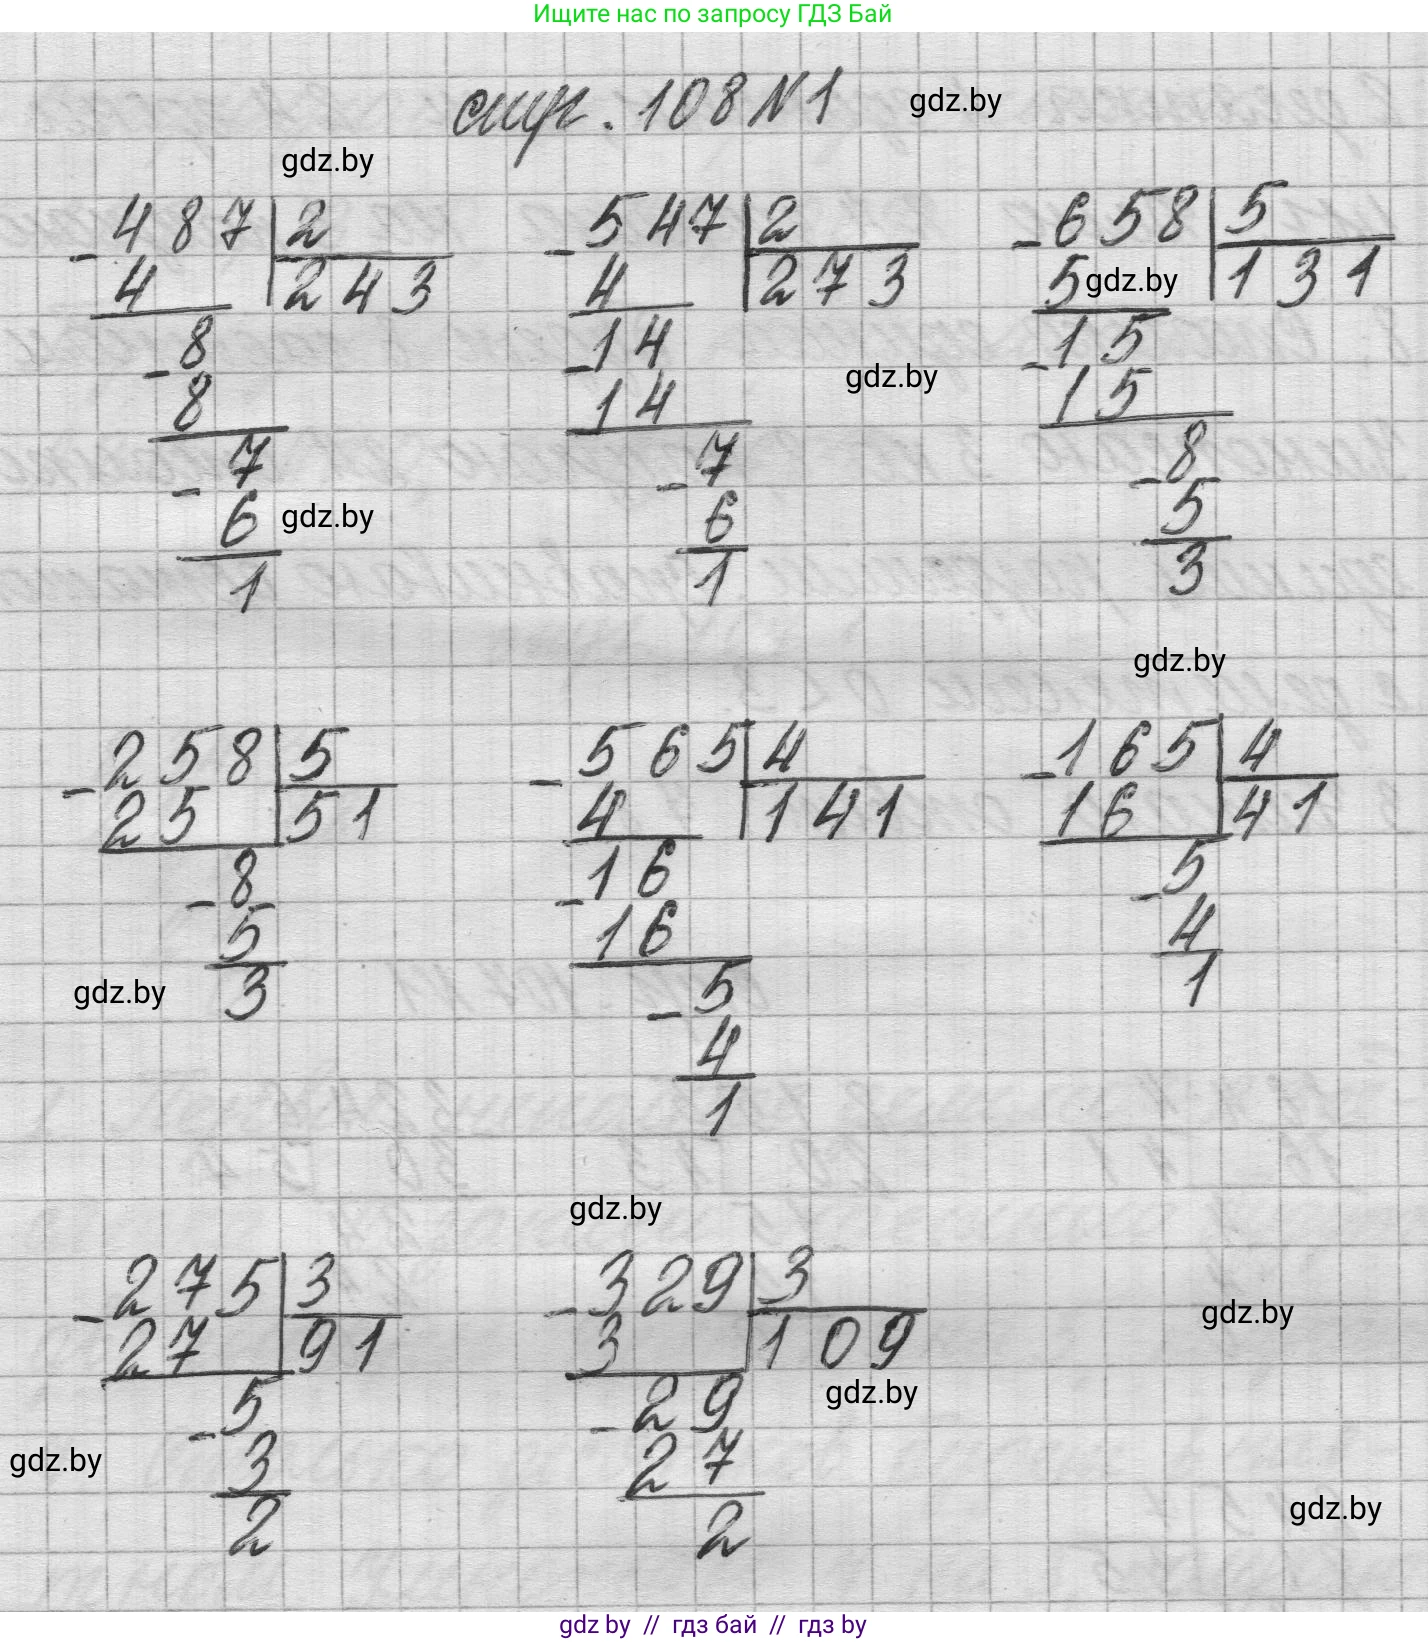 Ищите нас по запросу ГДЗ Бай
стр. 108 N 1
gdz.by
gdz.by
- 487 | 2
4 243
- 8
8
- 7
6
gdz.by
1
- 547 | 2
4 273
- 14
14
gdz.by
- 7
6
1
- 658 | 5
5 131
gdz.by
- 15
15
- 8
5
3
gdz.by
- 258 | 5
25 51
- 8
5
3
gdz.by
- 565 | 4
4 141
- 16
16
- 5
4
1
- 165 | 4
16 41
- 5
4
1
gdz.by
- 275 | 3
27 91
- 5
3
2
gdz.by
- 329 | 3
3 109
- 29
27
2
gdz.by
gdz.by
gdz.by
gdz.by // гдз бай // гдз by